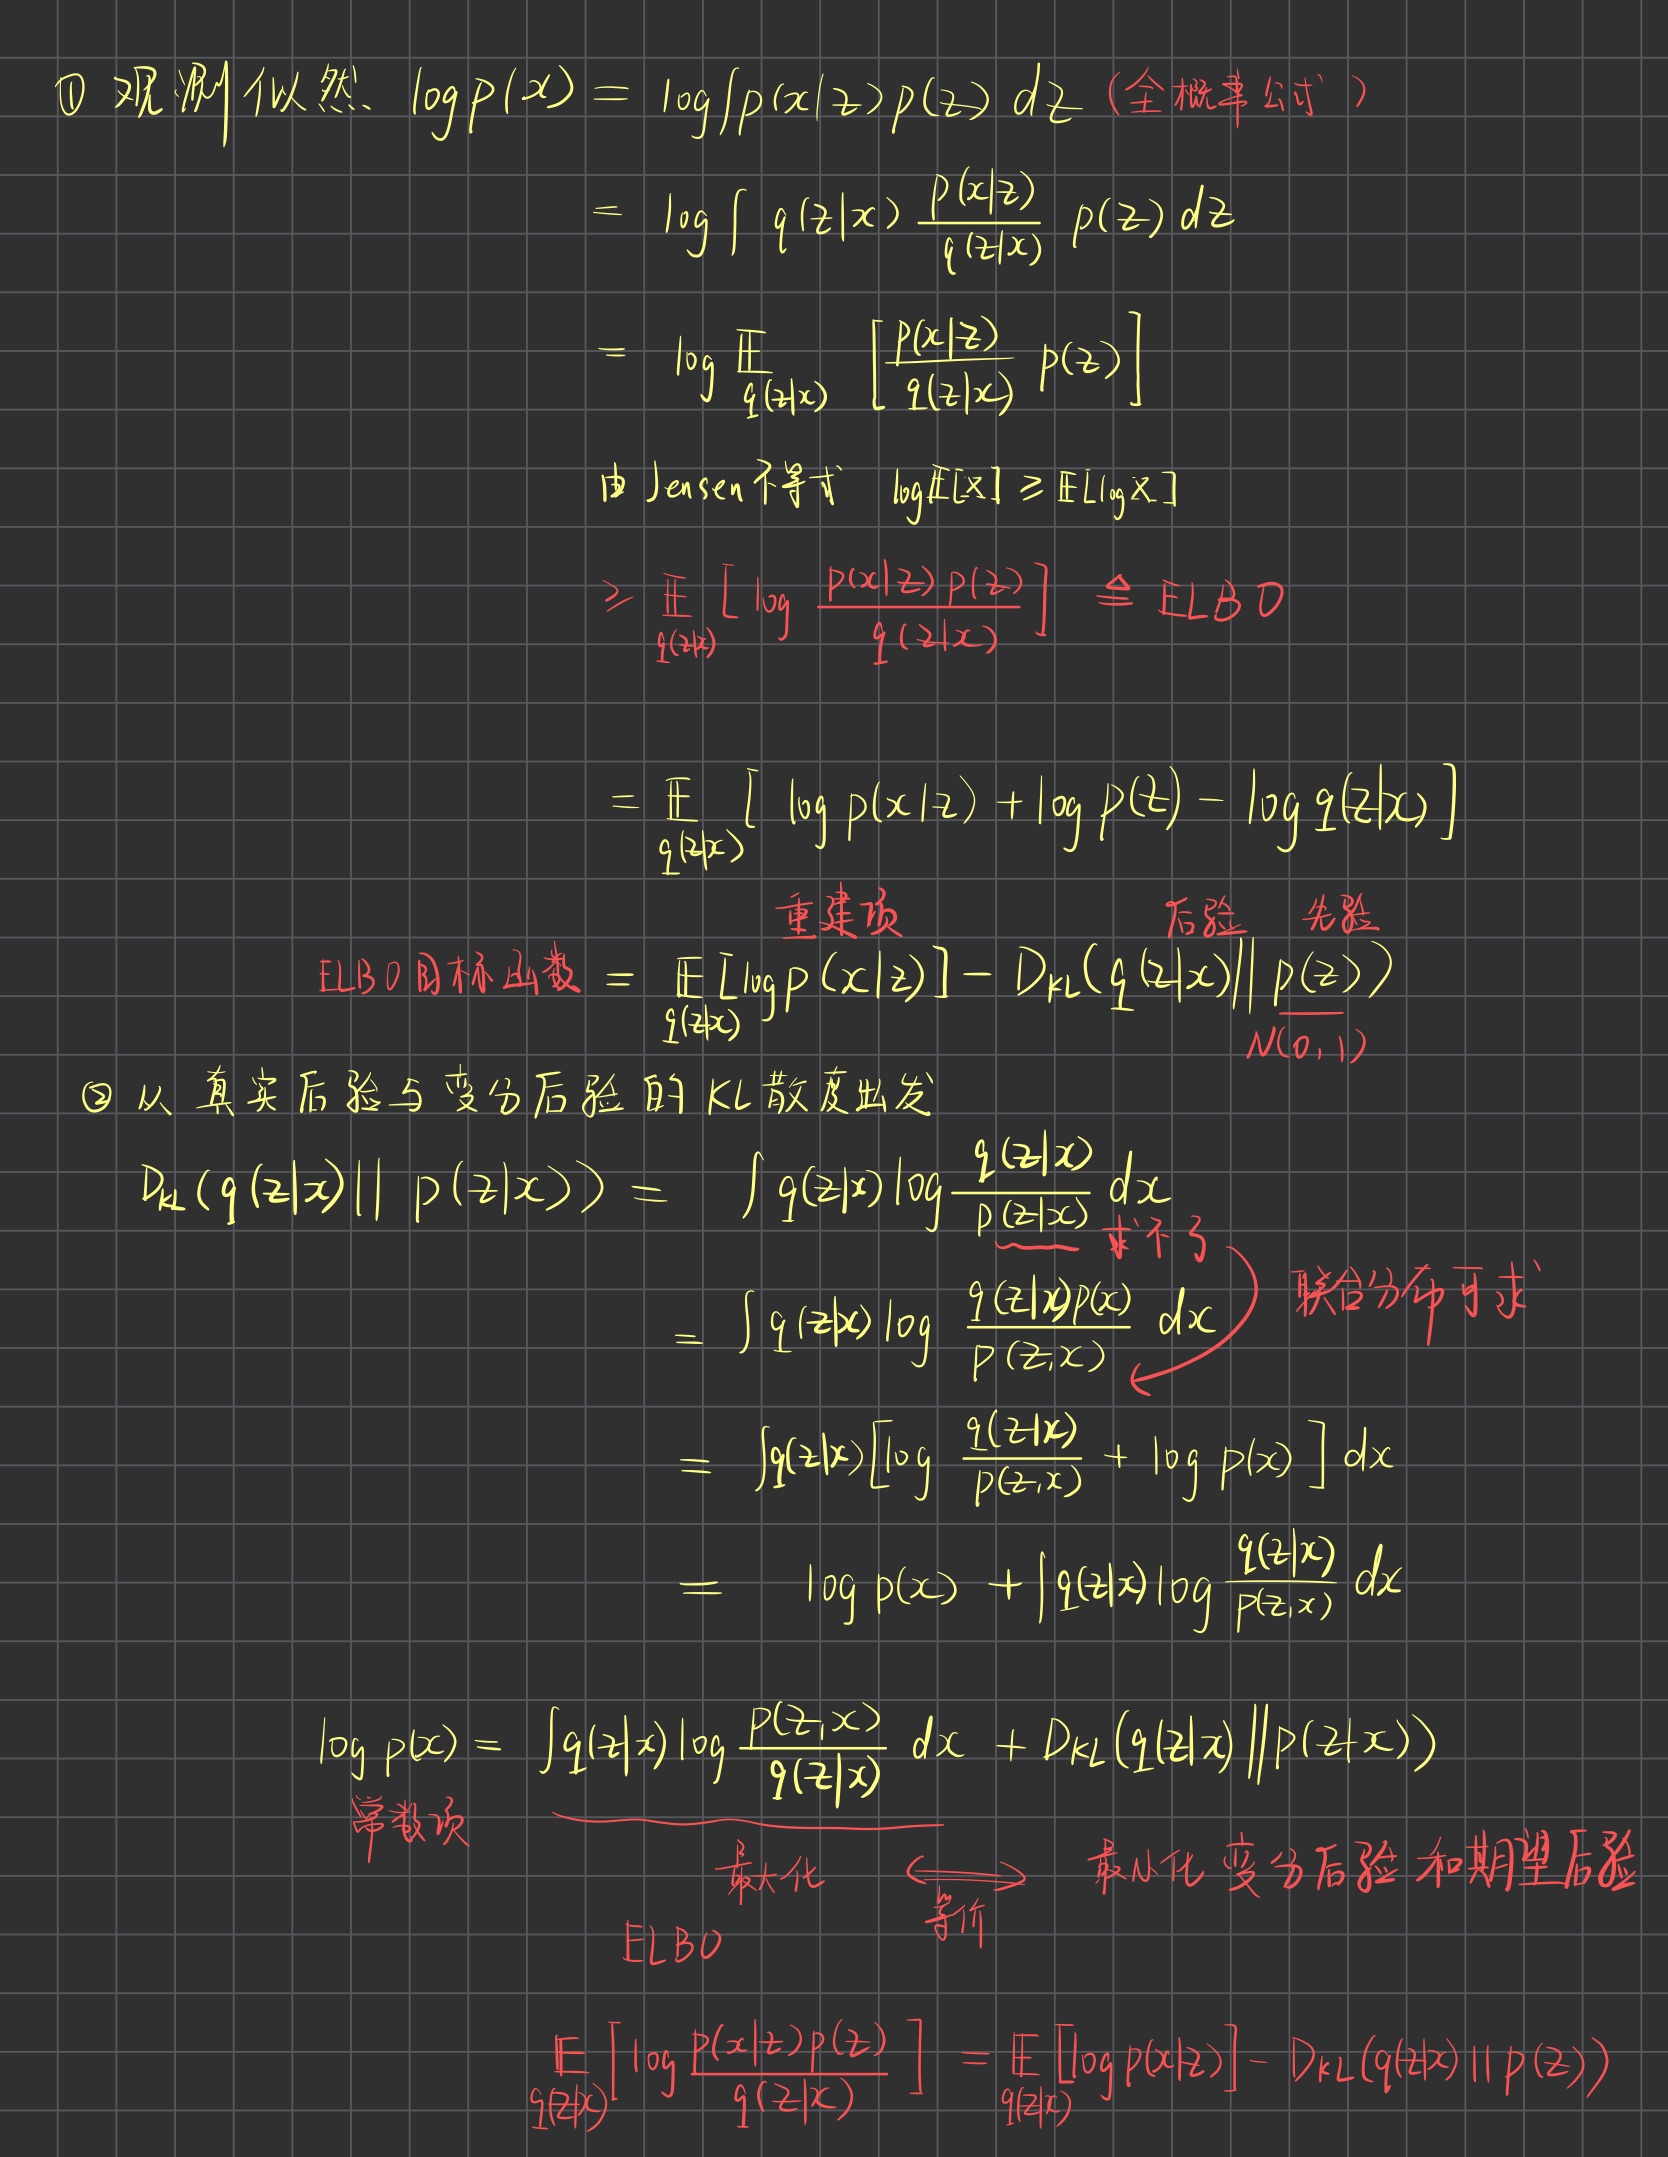 ① 观测似然 log p(x) = log∫p(x|z)p(z) dz (全概率公式)
= log∫ q(z|x) \frac{p(x|z)}{q(z|x)} p(z) dz
= log 𝔼_{q(z|x)} [\frac{p(x|z)}{q(z|x)} p(z)]
由 Jensen不等式 log𝔼[X] ≥ 𝔼[log X]
≥ 𝔼_{q(z|x)} [log \frac{p(x|z)p(z)}{q(z|x)}] ≜ ELBO
= 𝔼_{q(z|x)} [log p(x|z) + log p(z) - log q(z|x)]
重建项 后验 先验
ELBO目标函数 = 𝔼_{q(z|x)} [log p(x|z)] - D_{KL}(q(z|x)||p(z))
N(0,1)
② 从真实后验与变分后验的KL散度出发
D_{KL}(q(z|x)|| p(z|x)) = ∫q(z|x) log \frac{q(z|x)}{p(z|x)} dx
求不了
= ∫q(z|x) log \frac{q(z|x)p(x)}{p(z,x)} dx 联合分布可求
= ∫q(z|x)[log \frac{q(z|x)}{p(z,x)} + log p(x)] dx
= log p(x) + ∫q(z|x) log \frac{q(z|x)}{p(z,x)} dx
log p(x) = ∫q(z|x) log \frac{p(z,x)}{q(z|x)} dx + D_{KL}(q(z|x)||p(z|x))
常数项
最大化 ⟺ 最小化 变分后验 和期望后验
ELBO 等价
𝔼_{q(z|x)} [log \frac{p(x|z)p(z)}{q(z|x)}] = 𝔼_{q(z|x)} [log p(x|z)] - D_{KL}(q(z|x)||p(z))